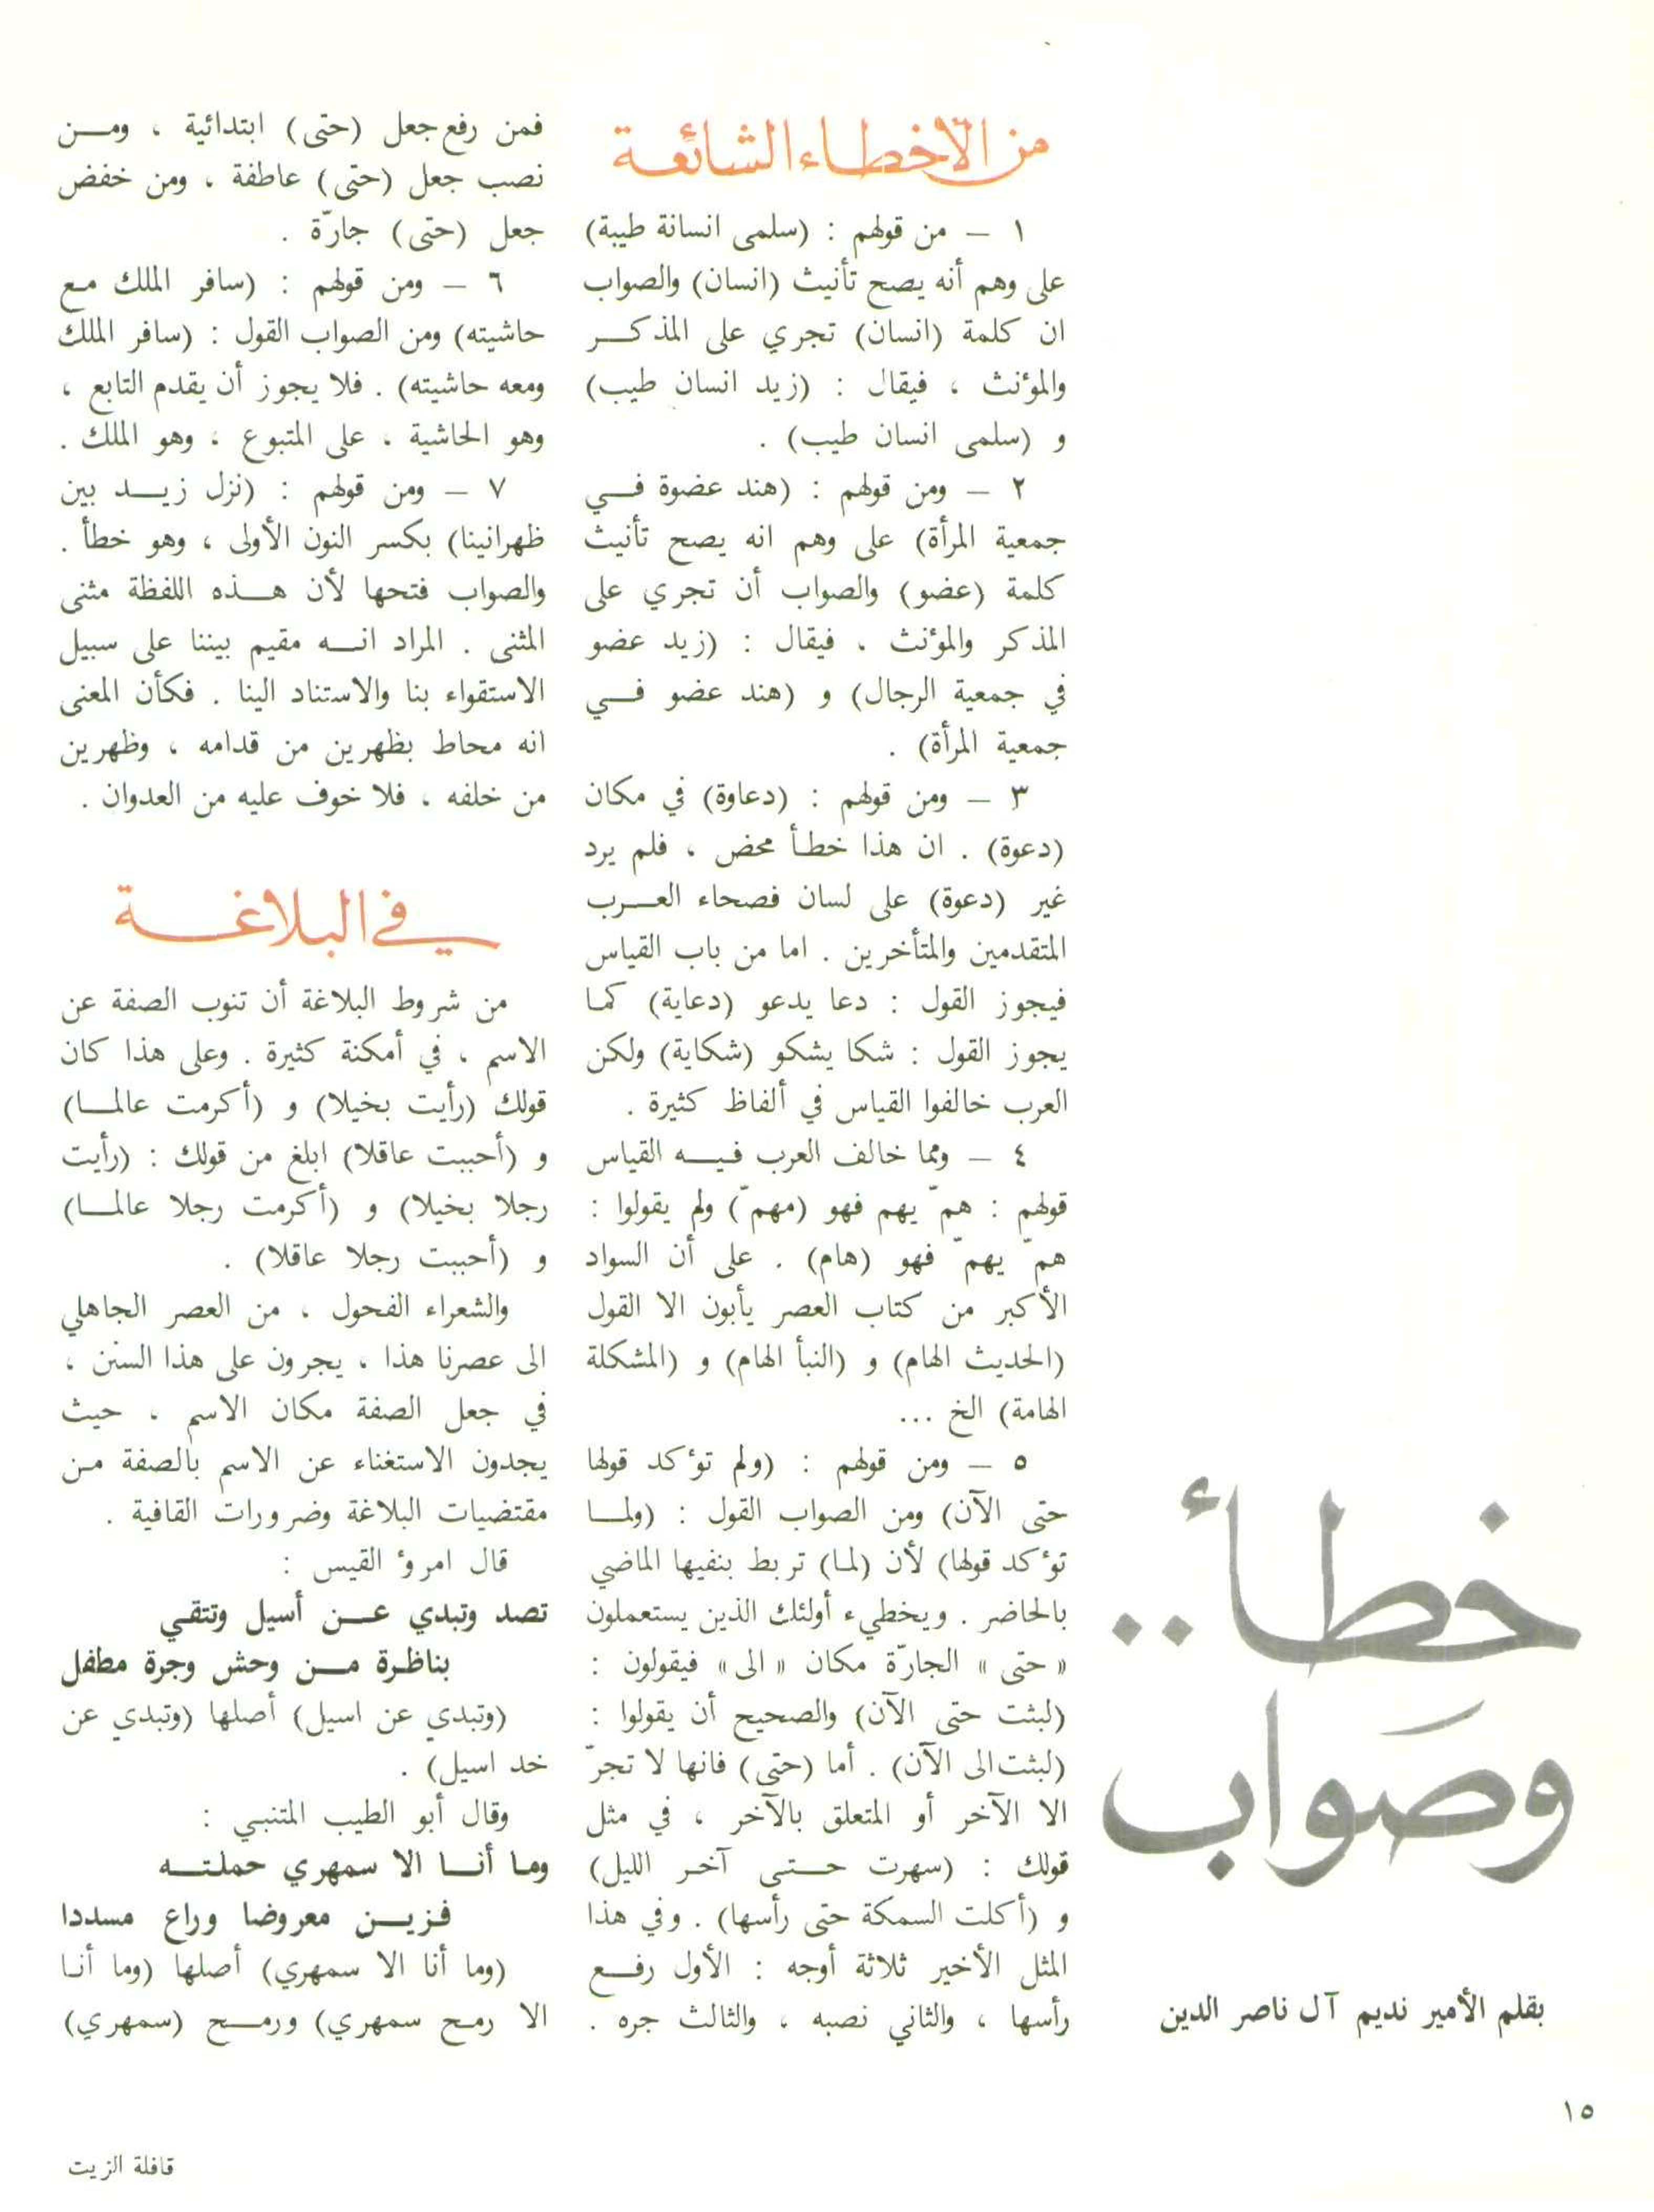 خطأ..
وصَواب
بقلم الأمير نديم آل ناصر الدين
من الأخطاء الشائعة
١ ــ من قولهم : (سلمى انسانة طيبة)
على وهم أنه يصح تأنيث (انسان) والصواب
ان كلمة (انسان) تجري على المذكر
والمؤنث ، فيقال : (زيد انسان طيب)
و (سلمى انسان طيب) .
٢ ــ ومن قولهم : (هند عضوة في
جمعية المرأة) على وهم انه يصح تأنيث
كلمة (عضو) والصواب أن تجري على
المذكر والمؤنث ، فيقال : (زيد عضو
في جمعية الرجال) و (هند عضو في
جمعية المرأة) .
٣ ــ ومن قولهم : (دعاوة) في مكان
(دعوة) . ان هذا خطأ محض ، فلم يرد
غير (دعوة) على لسان فصحاء العرب
المتقدمين والمتأخرين . اما من باب القياس
فيجوز القول : دعا يدعو (دعاية) كما
يجوز القول : شكا يشكو (شكاية) ولكن
العرب خالفوا القياس في ألفاظ كثيرة .
٤ ــ ومما خالف العرب فيه القياس
قولهم : همّ يهم فهو (مهمّ) ولم يقولوا :
همّ يهمّ فهو (هام) . على أن السواد
الأكبر من كتاب العصر يأبون الا القول
(الحديث الهام) و (النبأ الهام) و (المشكلة
الهامة) الخ ...
٥ ــ ومن قولهم : (ولم تؤكد قولها
حتى الآن) ومن الصواب القول : (ولما
تؤكد قولها) لأن (لما) تربط بنفيها الماضي
بالحاضر . ويخطيء أولئك الذين يستعملون
« حتى » الجارّة مكان « الى » فيقولون :
(لبثت حتى الآن) والصحيح أن يقولوا :
(لبثت الى الآن) . أما (حتى) فانها لا تجرّ
الا الآخر أو المتعلق بالآخر ، في مثل
قولك : (سهرت حتى آخر الليل)
و (أكلت السمكة حتى رأسها) . وفي هذا
المثل الأخير ثلاثة أوجه : الأول رفع
رأسها ، والثاني نصبه ، والثالث جره .
فمن رفع جعل (حتى) ابتدائية ، ومن
نصب جعل (حتى) عاطفة ، ومن خفض
جعل (حتى) جارّة .
٦ ــ ومن قولهم : (سافر الملك مع
حاشيته) ومن الصواب القول : (سافر الملك
ومعه حاشيته) . فلا يجوز أن يقدم التابع ،
وهو الحاشية ، على المتبوع ، وهو الملك .
٧ ــ ومن قولهم : (نزل زيد بين
ظهرانينا) بكسر النون الأولى ، وهو خطأ .
والصواب فتحها لأن هذه اللفظة مثنى
المثنى . المراد انه مقيم بيننا على سبيل
الاستقواء بنا والاستناد الينا . فكأن المعنى
انه محاط بظهرين من قدامه ، وظهرين
من خلفه ، فلا خوف عليه من العدوان .
في البلاغة
من شروط البلاغة أن تنوب الصفة عن
الاسم ، في أمكنة كثيرة . وعلى هذا كان
قولك (رأيت بخيلا) و (أكرمت عالما)
و (أحببت عاقلا) ابلغ من قولك : (رأيت
رجلا بخيلا) و (أكرمت رجلا عالما)
و (أحببت رجلا عاقلا) .
والشعراء الفحول ، من العصر الجاهلي
الى عصرنا هذا ، يجرون على هذا السنن ،
في جعل الصفة مكان الاسم ، حيث
يجدون الاستغناء عن الاسم بالصفة من
مقتضيات البلاغة وضرورات القافية .
قال امرؤ القيس :
تصد وتبدي عن أسيل وتتقي
بناظرة من وحش وجرة مطفل
(وتبدي عن اسيل) أصلها (وتبدي عن
خد اسيل) .
وقال أبو الطيب المتنبي :
وما أنا الا سمهري حملته
فزين معروضا وراع مسددا
(وما أنا الا سمهري) أصلها (وما أنا
الا رمح سمهري) ورمح (سمهري)
١٥
قافلة الزيت